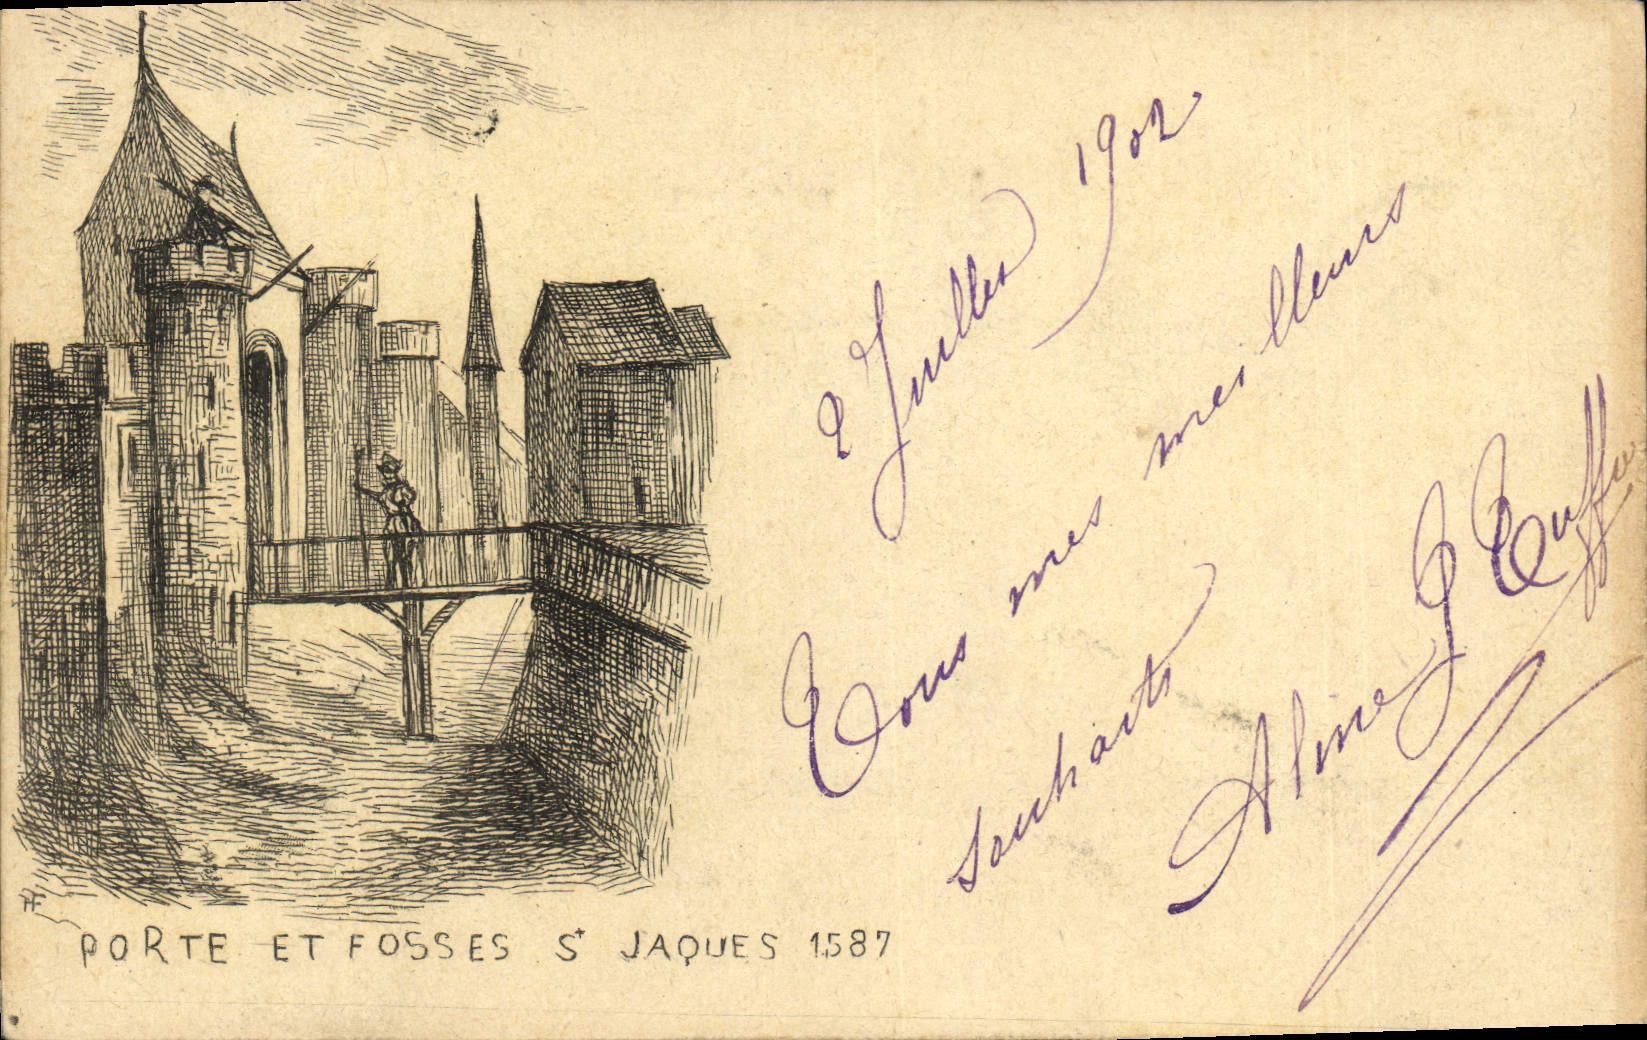 2 Juillet 1902
Tous mes meilleurs
souhaits
Aline
PORTE ET FOSSES St JAQUES 1587
HF